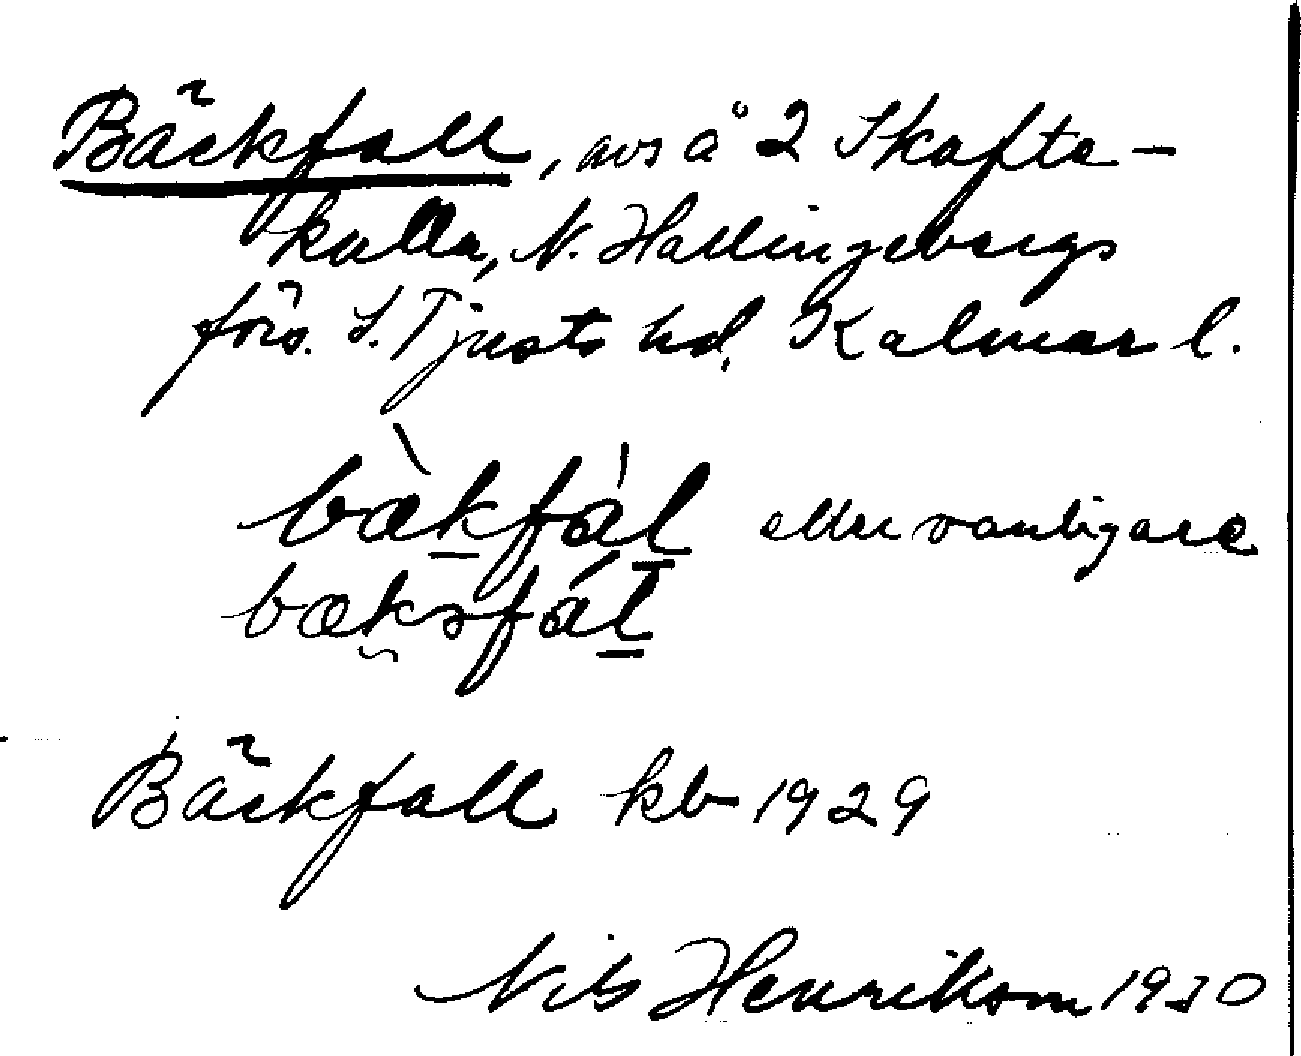 Bäckfall, avs å 2 Skafta-
kulla, N. Hallingebergs
förs. S. Tjusts hd, Kalmar l.
bæ̀kfál eller vanligare
bæksfál
Bäckfall kb 1929
Nils Henriksson 1930